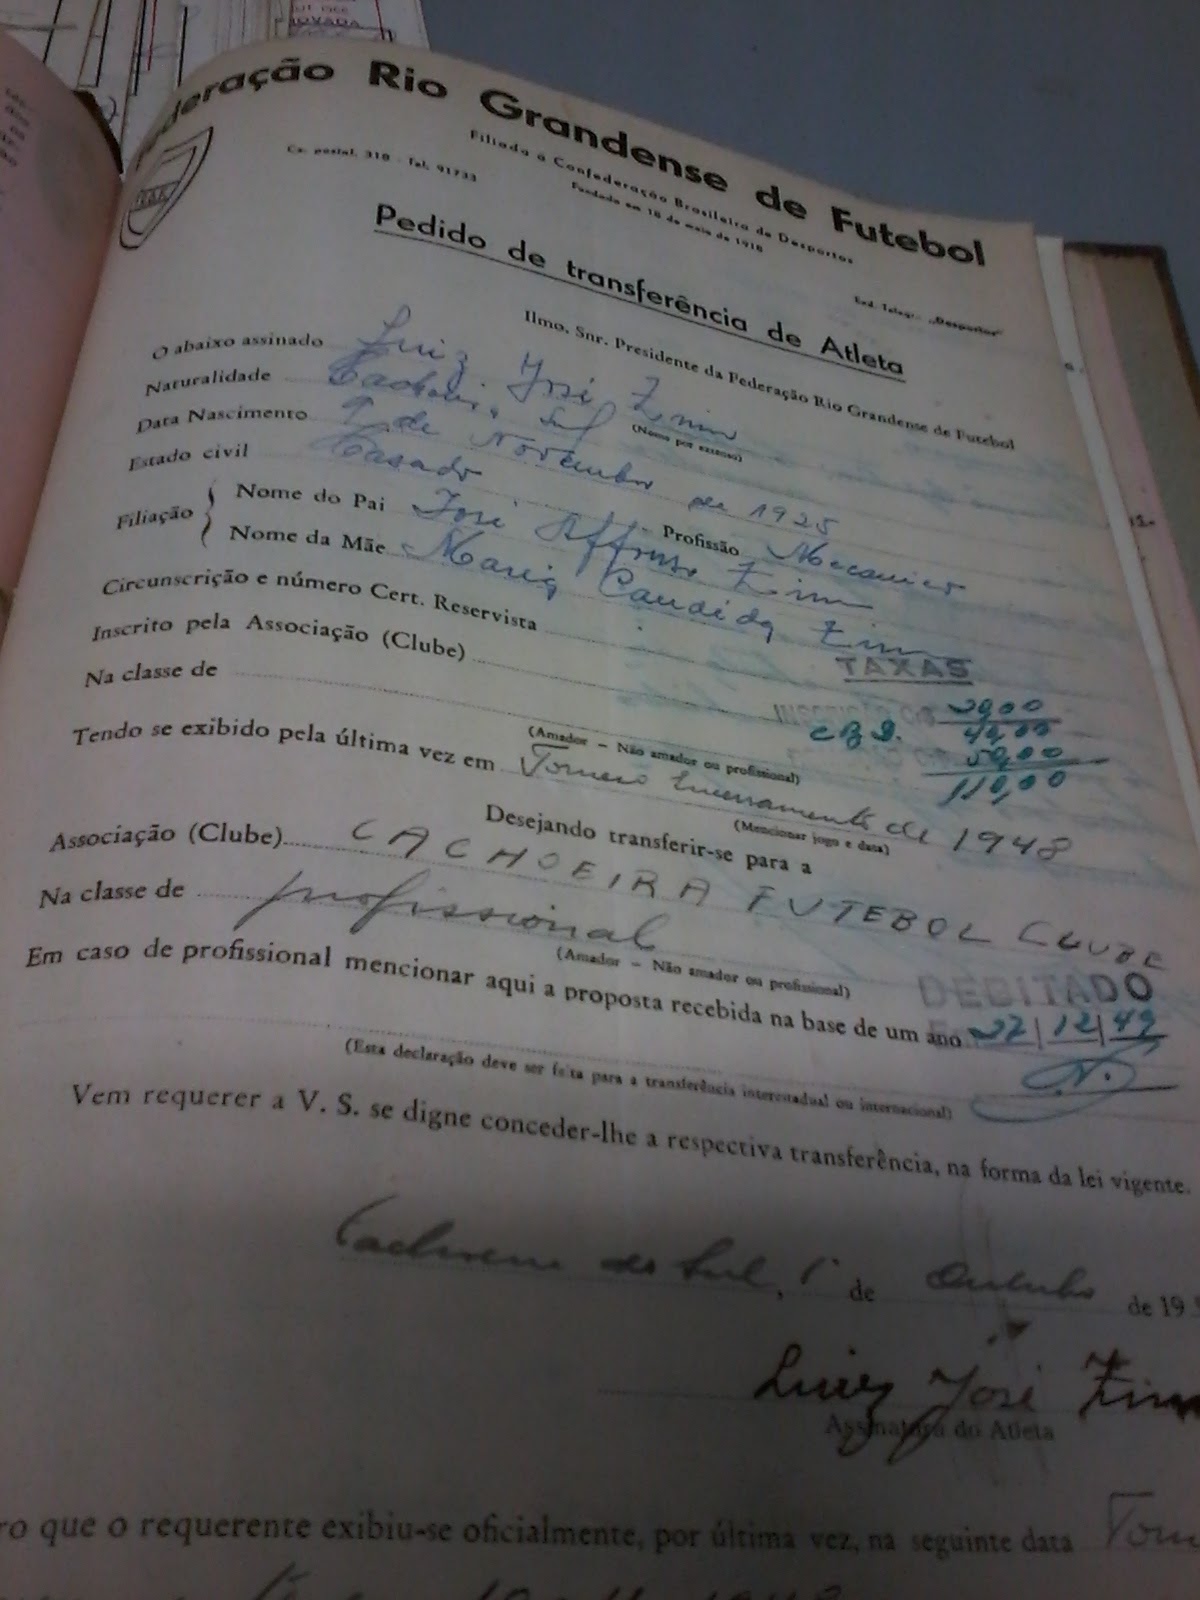 deração Rio Grandense de Futebol
Filiada a Confederação Brasileira de Desportos
Cx. postal, 318 - Tel. 91733
Fundada em 18 de maio de 1918
End. Telegr. „Desportos"
Pedido de transferência de Atleta
Ilmo. Snr. Presidente da Federação Rio Grandense de Futebol
O abaixo assinado Luiz José Zinn
(Nome por extenso)
Naturalidade Cachoeira Sul
Data Nascimento 9 de Novembro de 1925
Estado civil Casado Profissão Mecanico
Filiação
Nome do Pai José Affonso Zinn
Nome da Mãe Maria Candida Zinn
Circunscrição e número Cert. Reservista
TAXAS
Inscrito pela Associação (Clube)
INSCRIÇÃO 20,00
C B D. 40,00
Na classe de
50,00
(Amador – Não amador ou profissional)
110,00
Tendo se exibido pela última vez em Torneio Encerramento de 1948
(Mencionar jogo e data)
Desejando transferir-se para a
Associação (Clube) CACHOEIRA FUTEBOL CLUBE
Na classe de profissional
(Amador – Não amador ou profissional)
DEBITADO
Em caso de profissional mencionar aqui a proposta recebida na base de um ano
22/12/49
(Esta declaração deve ser feita para a transferência interestadual ou internacional)
Vem requerer a V. S. se digne conceder-lhe a respectiva transferência, na forma da lei vigente.
Cachoeira do Sul, 1º de Outubro de 19
Luiz José Zinn
Assinatura do Atleta
ro que o requerente exibiu-se oficialmente, por última vez, na seguinte data Torn